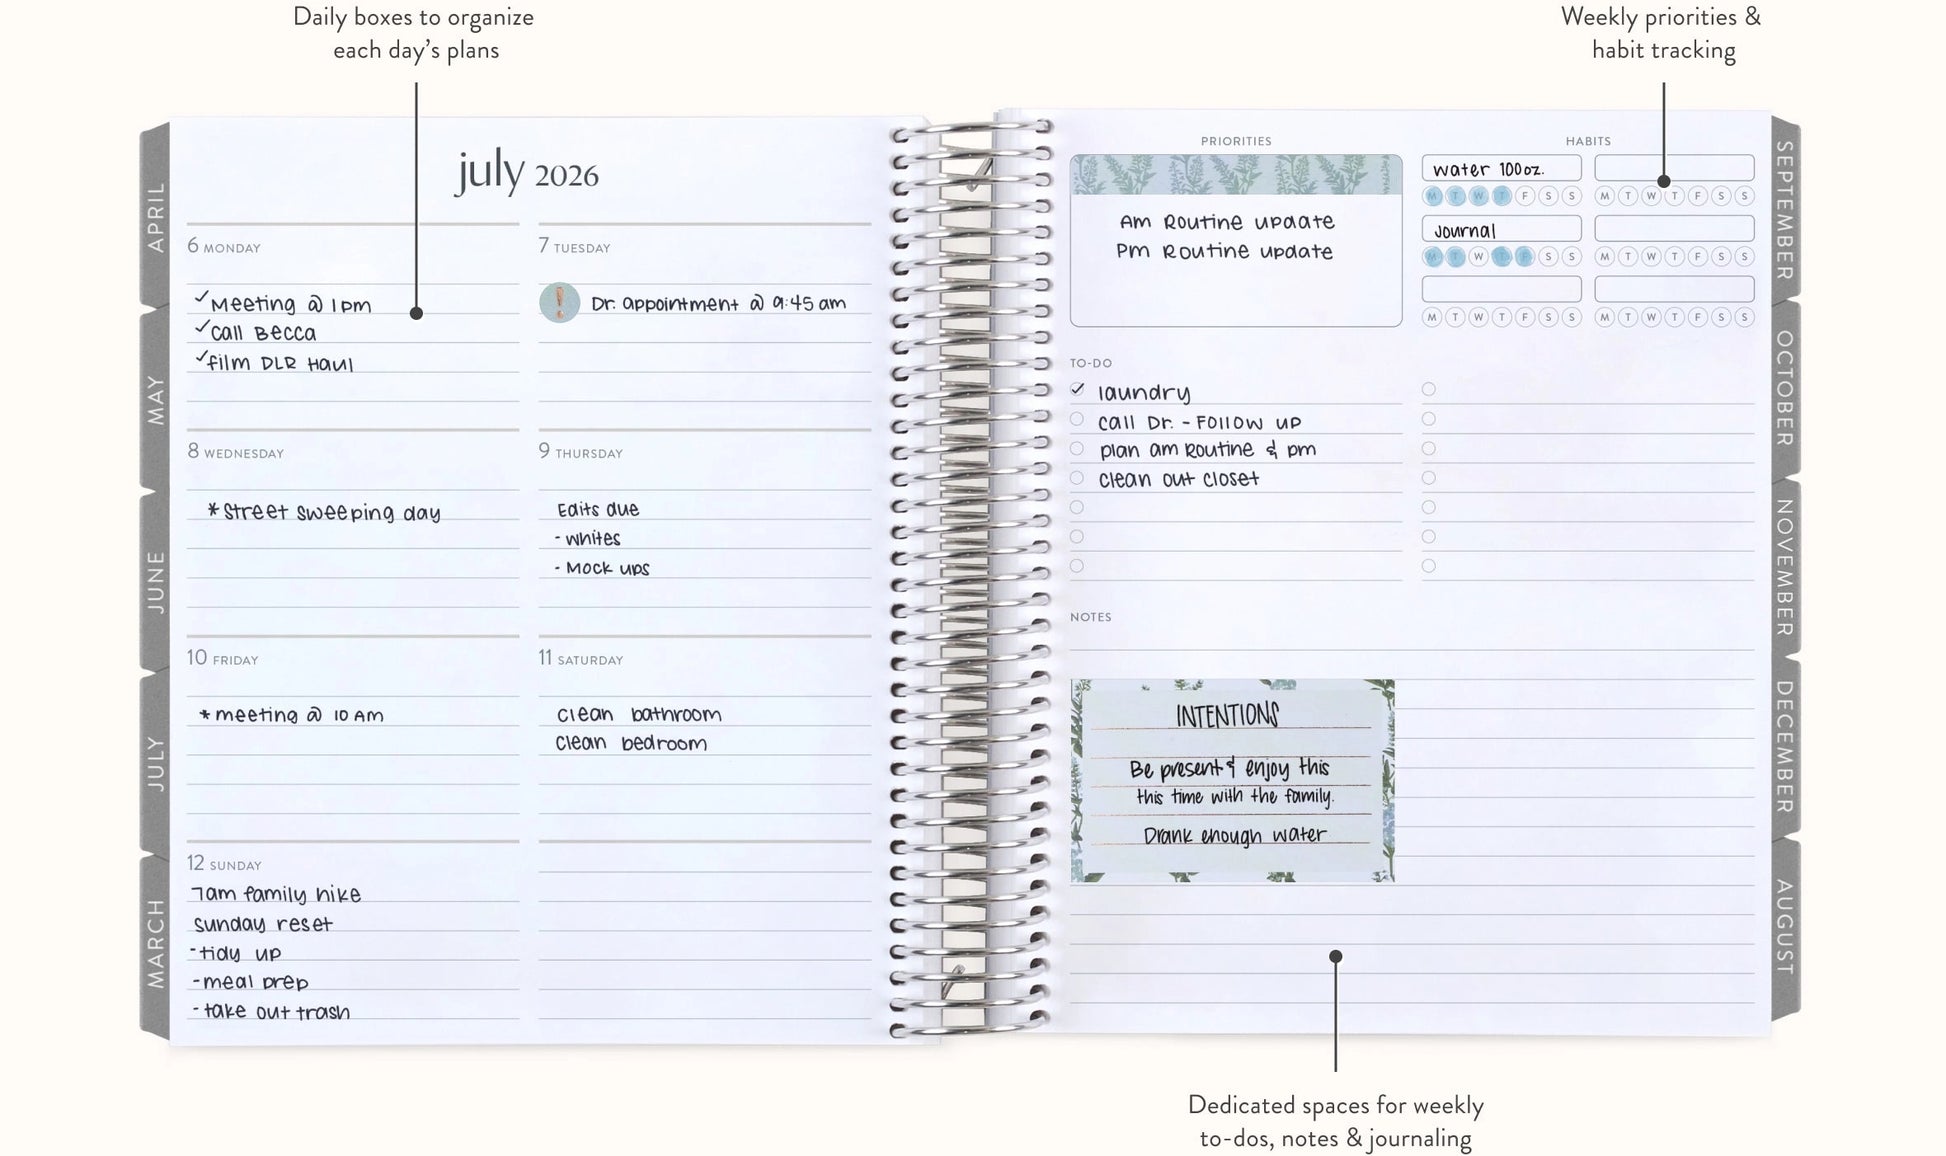 Daily boxes to organize
each day's plans
Weekly priorities &
habit tracking
APRIL
MAY
JUNE
JULY
MARCH
july 2026
6 MONDAY
✓Meeting @ 1pm
✓call Becca
✓film DLR Haul
7 TUESDAY
Dr. appointment @ 9:45 am
8 WEDNESDAY
*Street sweeping day
9 THURSDAY
Edits due
- whites
- Mock ups
10 FRIDAY
*meeting @ 10 AM
11 SATURDAY
clean bathroom
clean bedroom
12 SUNDAY
7am family hike
sunday reset
-tidy up
-meal prep
-take out trash
PRIORITIES
Am Routine update
Pm Routine update
HABITS
water 100oz.
M T W T F S S
M T W T F S S
Journal
M T W T F S S
M T W T F S S
M T W T F S S
M T W T F S S
TO-DO
✓ laundry
call Dr. - Follow up
plan am Routine & pm
clean out closet
NOTES
INTENTIONS
Be present & enjoy this
this time with the family.
Drank enough water
SEPTEMBER
OCTOBER
NOVEMBER
DECEMBER
AUGUST
Dedicated spaces for weekly
to-dos, notes & journaling